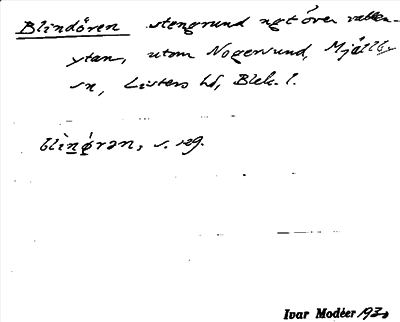 Blindören stengrund ngt över vatten-
ytan, utom Nogersund, Mjällby
sn, Listers hd, Blek. l.
blìnǿrən, s. seg.
Ivar Modéer 193